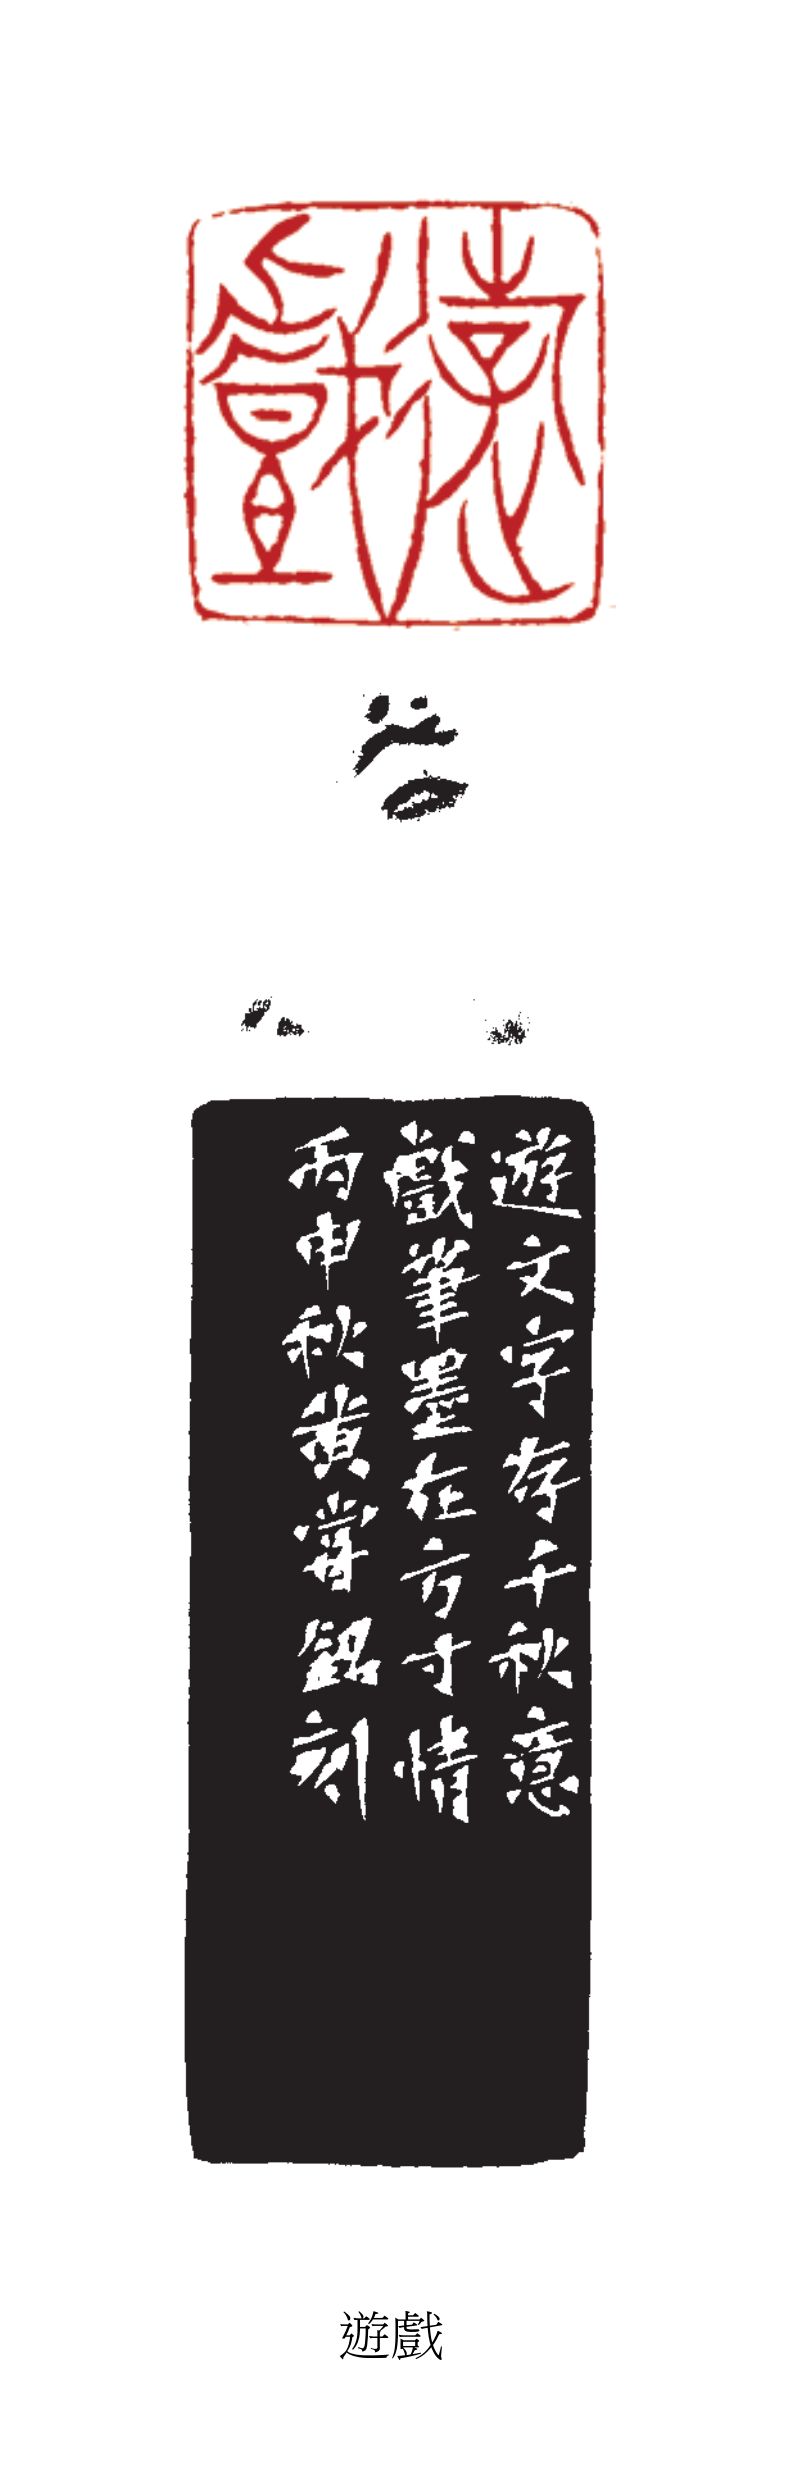 遊戲
遊文字存千秋意
戲筆墨在方寸情
丙申秋黃嘗銘刻
遊戲